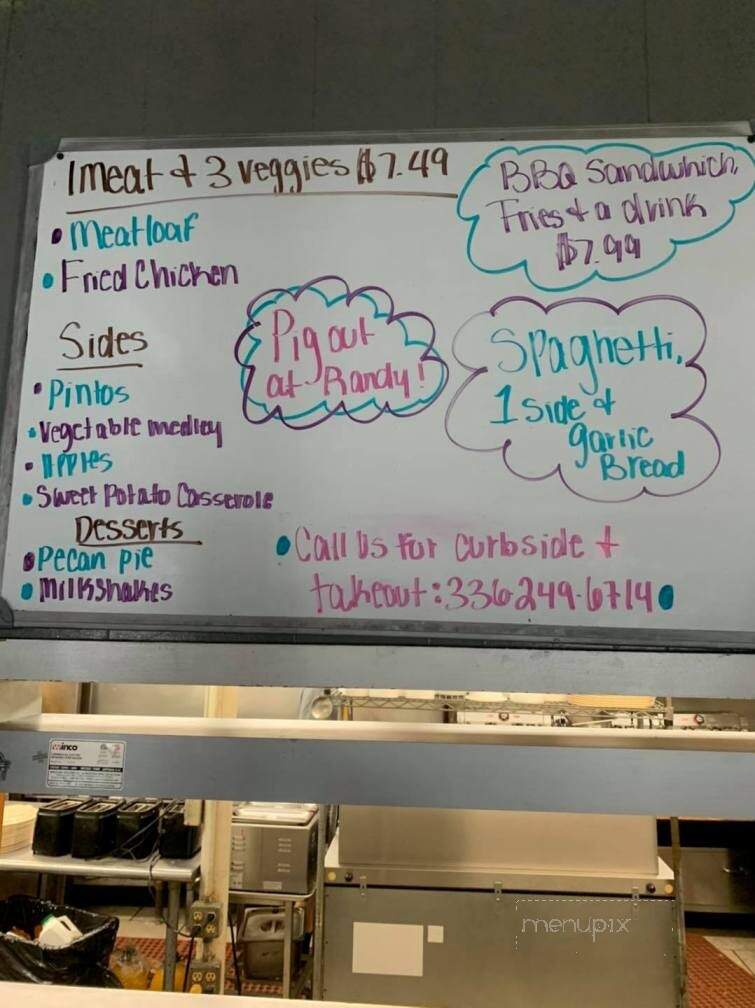 1 meat & 3 veggies $7.49
• Meatloaf
• Fried Chicken
Sides
• Pintos
• Vegetable medley
• Apples
• Sweet Potato Casserole
Desserts
• Pecan pie
• Milkshakes
BBQ Sandwhich,
Fries & a drink
$7.99
Pig out
at Randy!
Spaghetti,
1 side &
garlic
Bread
• Call us for curbside &
takeout: 336-249-6714 •
winco
menupix